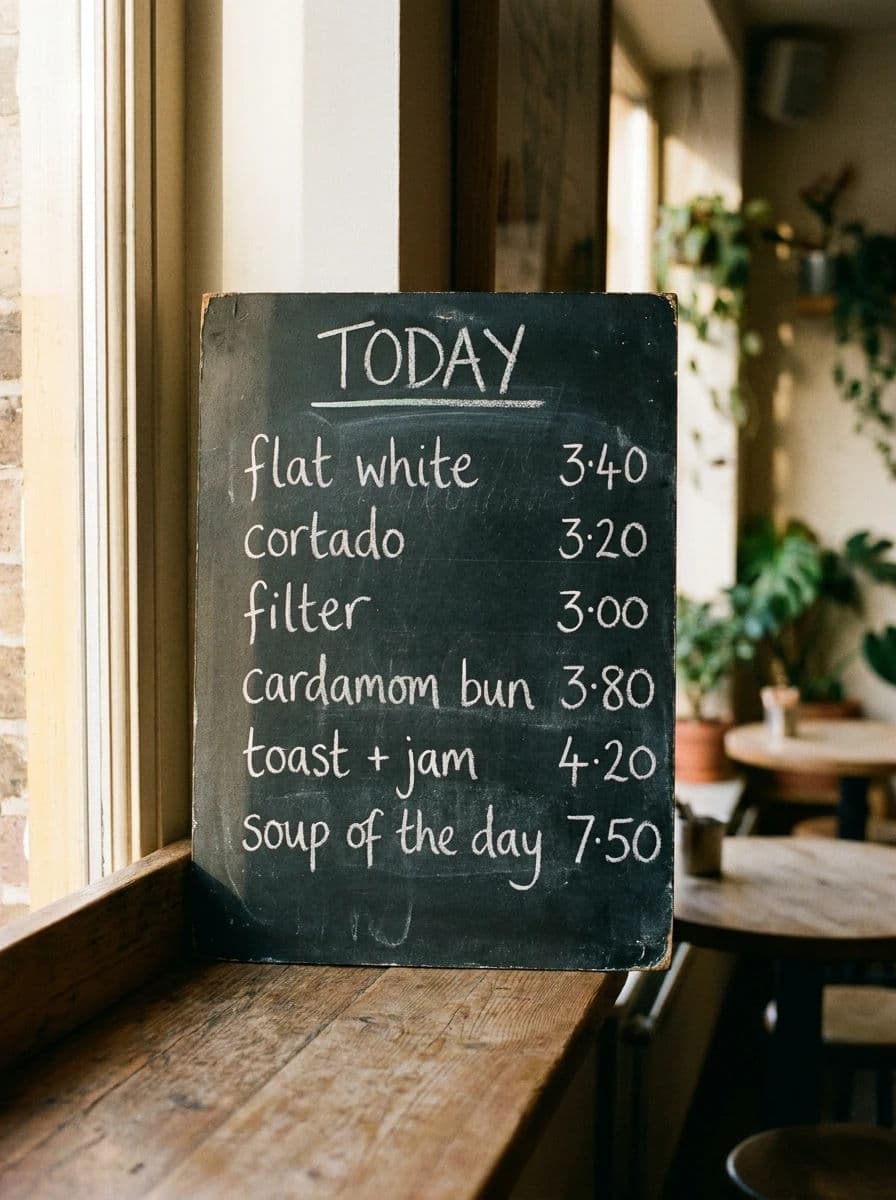 TODAY
flat white 3·40
cortado 3·20
filter 3·00
cardamom bun 3·80
toast + jam 4·20
soup of the day 7·50